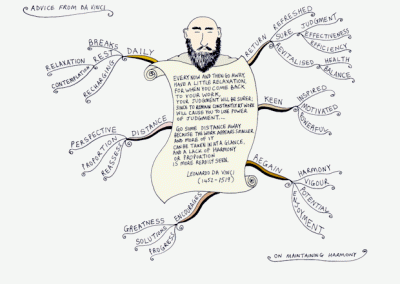 ADVICE FROM DA VINCI
BREAKS
REST
DAILY
RELAXATION
CONTEMPLATION
RECHARGING
PERSPECTIVE
PROPORTION
REASSESS
DISTANCE
GREATNESS
SOLUTIONS
PROGRESS
ENCOURAGES
EVERY NOW AND THEN GO AWAY,
HAVE A LITTLE RELAXATION,
FOR WHEN YOU COME BACK
TO YOUR WORK,
YOUR JUDGMENT WILL BE SURER;
SINCE TO REMAIN CONSTANTLY AT WORK
WILL CAUSE YOU TO LOSE POWER
OF JUDGMENT...
GO SOME DISTANCE AWAY
BECAUSE THE WORK APPEARS SMALLER
AND MORE OF IT
CAN BE TAKEN IN AT A GLANCE,
AND A LACK OF HARMONY
OR PROPORTION
IS MORE READILY SEEN.
LEONARDO DA VINCI
(1452-1519)
RETURN
REFRESHED
SURE JUDGMENT
EFFECTIVENESS
EFFICIENCY
REVITALISED
HEALTH
BALANCE
KEEN
INSPIRED
MOTIVATED
POWERFUL
REGAIN
HARMONY
VIGOUR
POTENTIAL
ENJOYMENT
ON MAINTAINING HARMONY